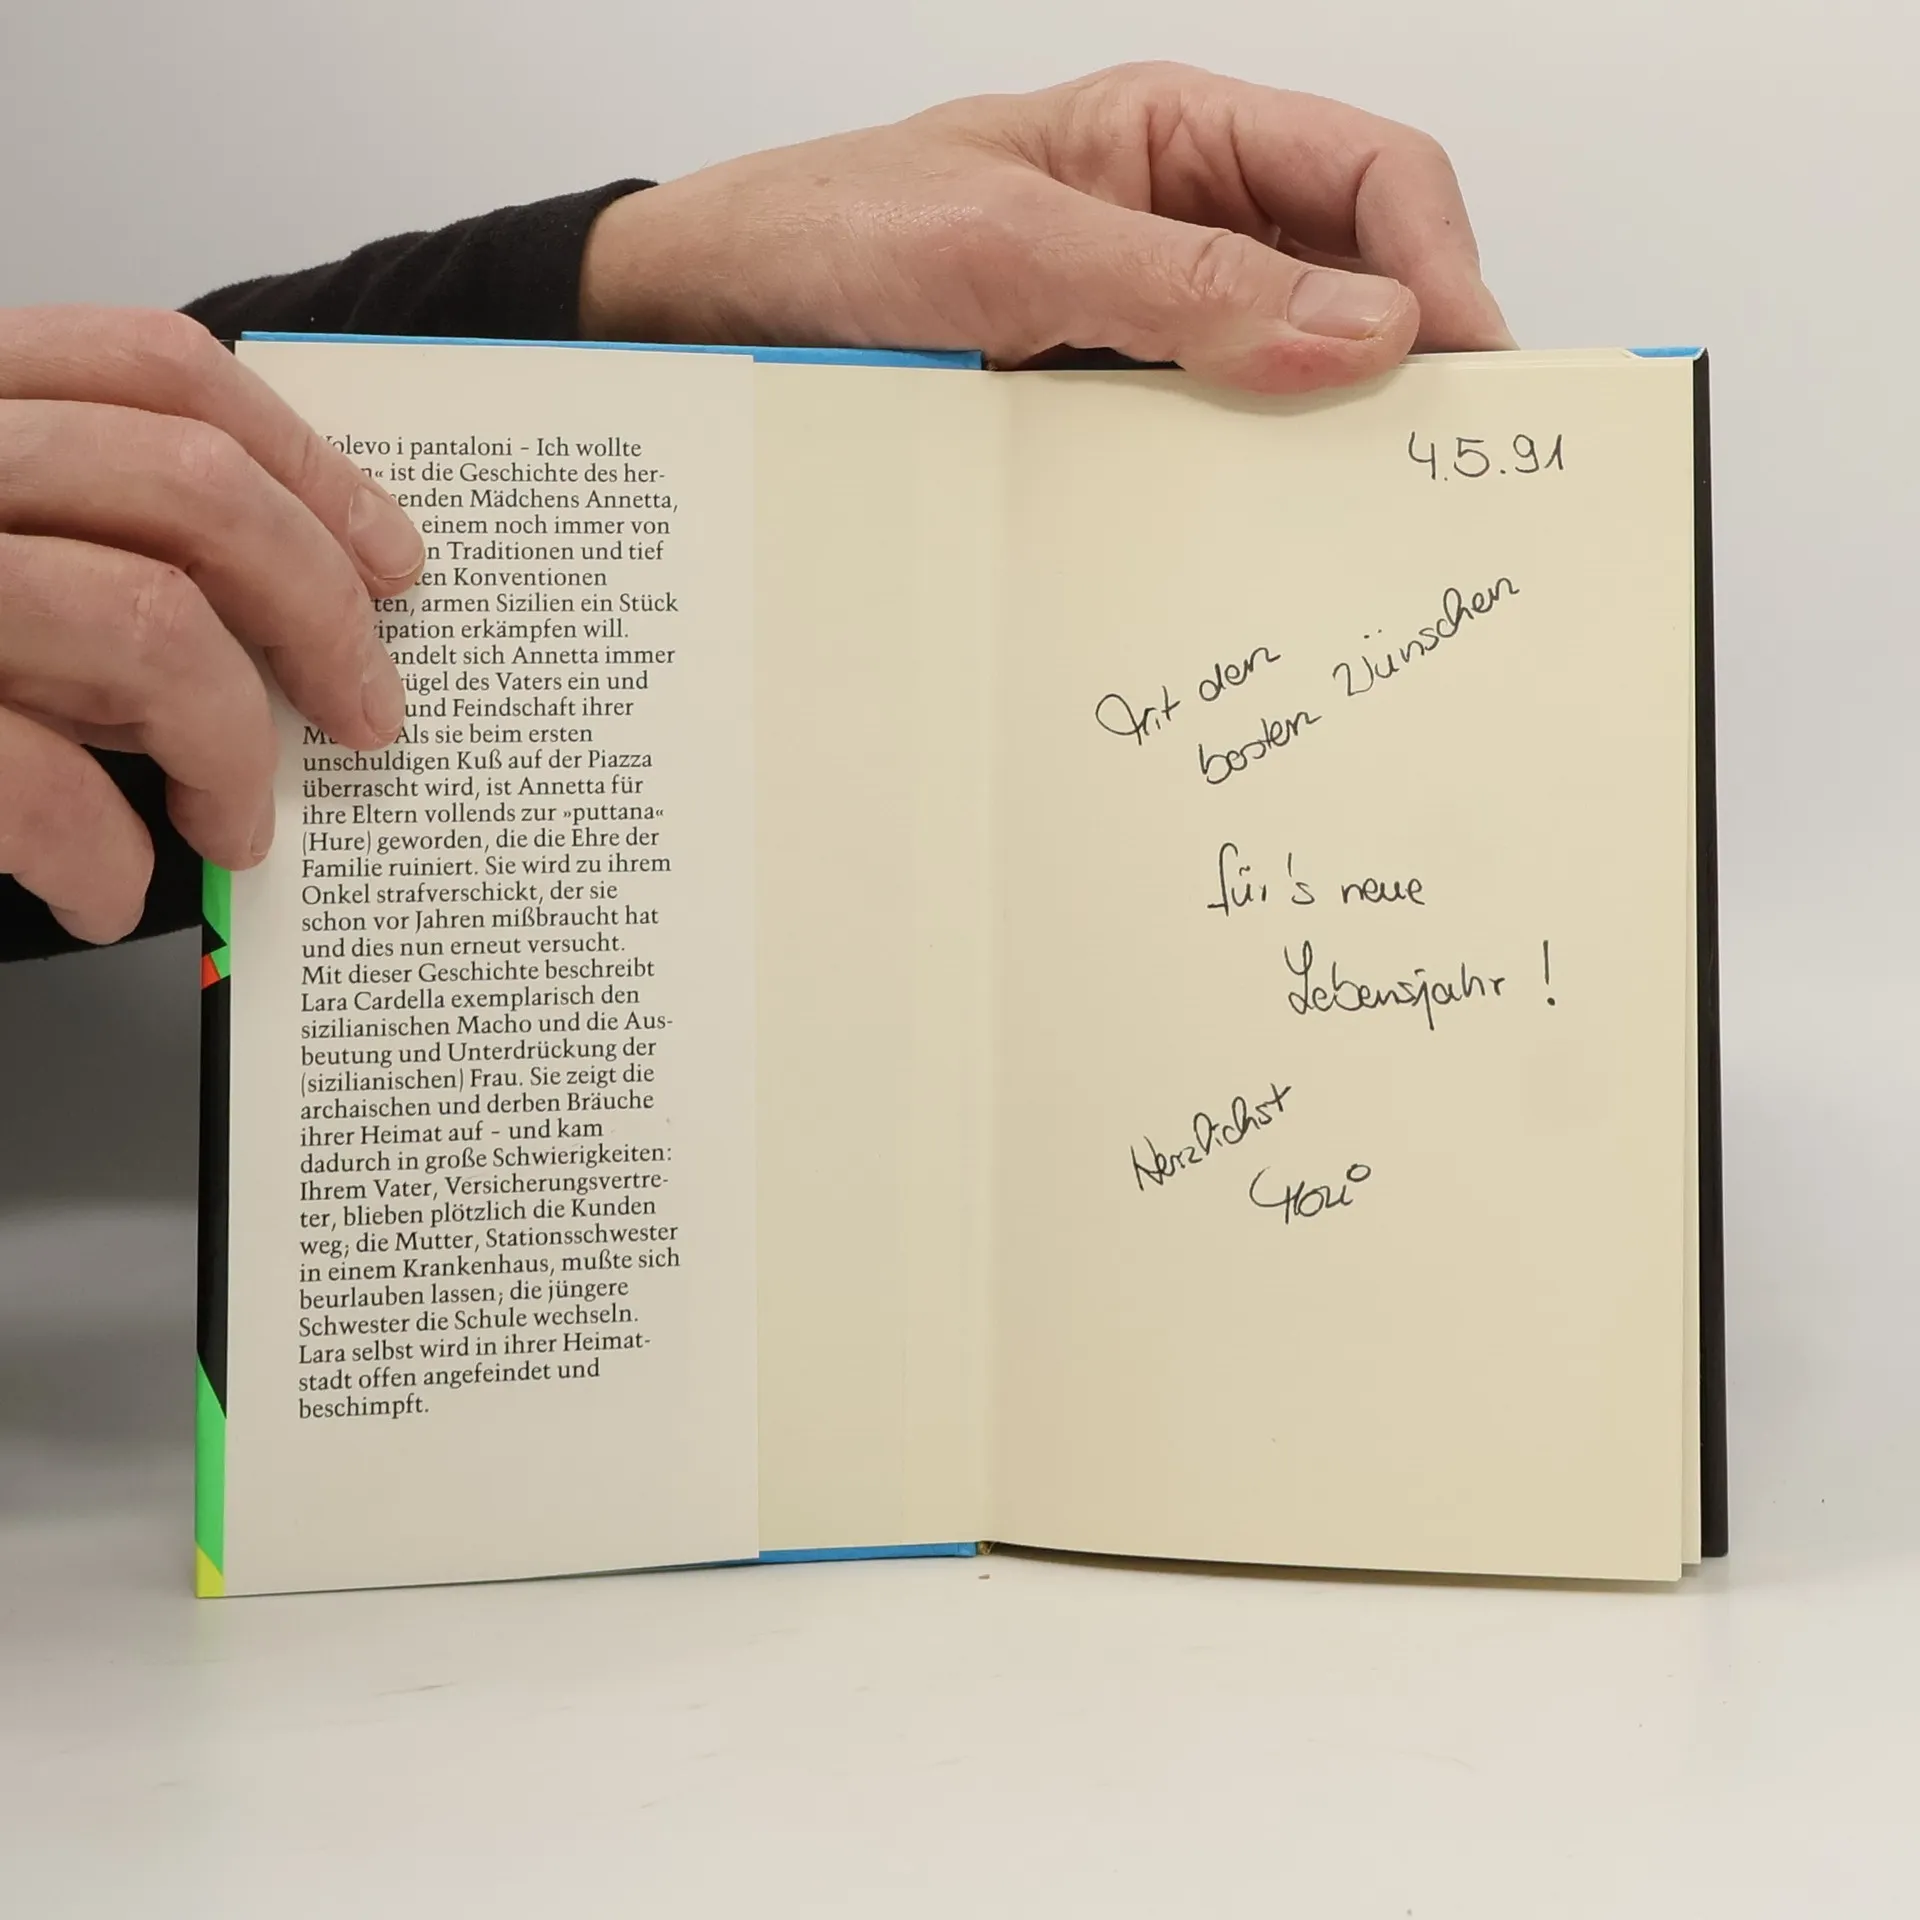 olevo i pantaloni – Ich wollte
n« ist die Geschichte des her-
enden Mädchens Annetta,
einem noch immer von
n Traditionen und tief
ten Konventionen
ten, armen Sizilien ein Stück
ipation erkämpfen will.
andelt sich Annetta immer
ügel des Vaters ein und
und Feindschaft ihrer
M Als sie beim ersten
unschuldigen Kuß auf der Piazza
überrascht wird, ist Annetta für
ihre Eltern vollends zur »puttana«
(Hure) geworden, die die Ehre der
Familie ruiniert. Sie wird zu ihrem
Onkel strafverschickt, der sie
schon vor Jahren mißbraucht hat
und dies nun erneut versucht.
Mit dieser Geschichte beschreibt
Lara Cardella exemplarisch den
sizilianischen Macho und die Aus-
beutung und Unterdrückung der
(sizilianischen) Frau. Sie zeigt die
archaischen und derben Bräuche
ihrer Heimat auf – und kam
dadurch in große Schwierigkeiten:
Ihrem Vater, Versicherungsvertre-
ter, blieben plötzlich die Kunden
weg; die Mutter, Stationsschwester
in einem Krankenhaus, mußte sich
beurlauben lassen; die jüngere
Schwester die Schule wechseln.
Lara selbst wird in ihrer Heimat-
stadt offen angefeindet und
beschimpft.
4.5.91
Mit den
besten Wünschen
für's neue
Lebensjahr !
Herzlichst